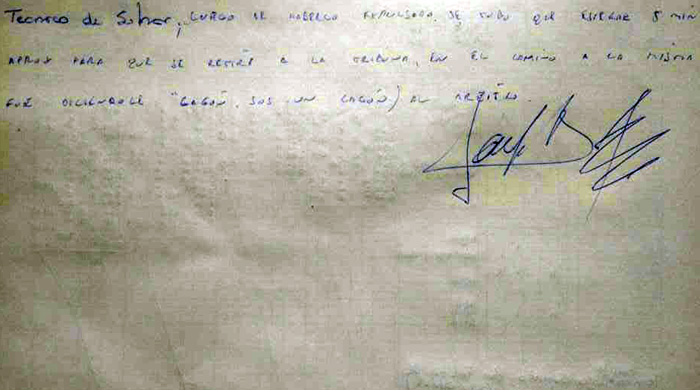 Tecnico de Sohor, LUEGO DE HABERLO EXPULSADO, SE TUVO QUE ESPERAR 5 MIN
APROX PARA QUE SE RETIRE A LA TRIBUNA, EN EL CAMINO A LA MISMA
FUE DICIENDOLE "CAGÓN, SOS UN CAGÓN) AL ARBITRO.